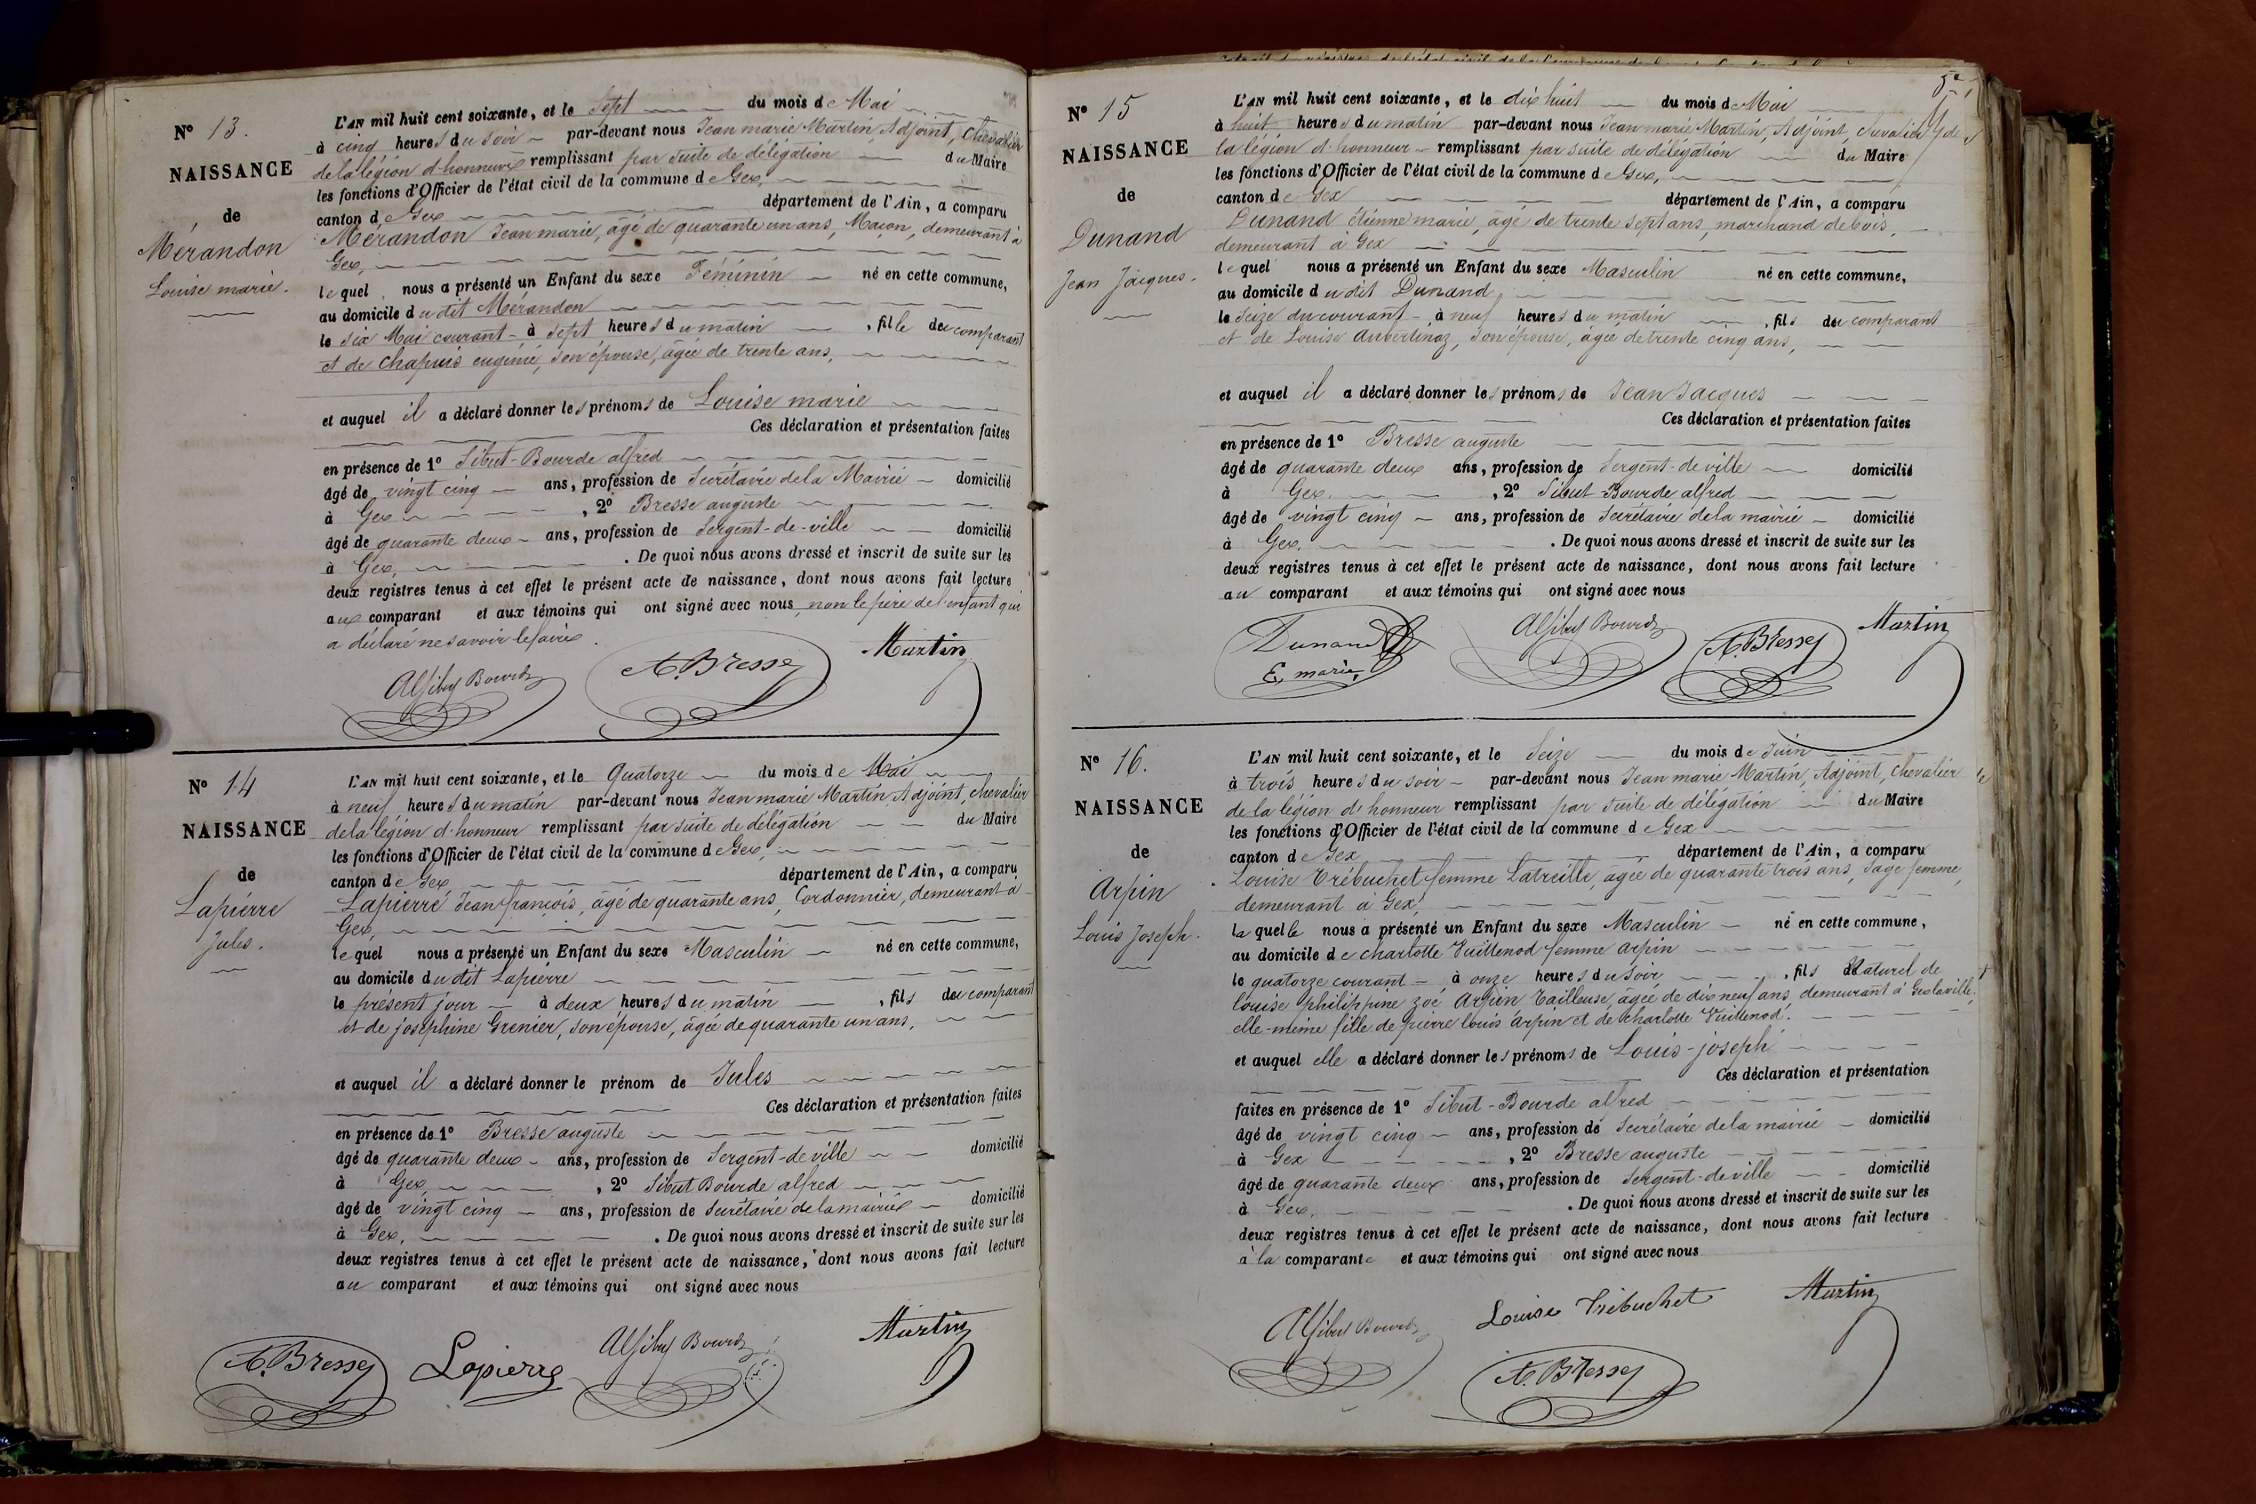 N° 13.
NAISSANCE
de
Mérandon
Louise marie.
L'AN mil huit cent soixante, et le Sept du mois de Mai
à cinq heures du soir par-devant nous Jean marie Martin, Adjoint, Chevalier
de la légion d'honneur remplissant par suite de délégation du Maire
les fonctions d'Officier de l'état civil de la commune de Gex,
canton de Gex département de l'Ain, a comparu
Mérandon Jean marie, âgé de quarante un ans, Maçon, demeurant à
Gex,
lequel nous a présenté un Enfant du sexe Féminin né en cette commune,
au domicile du dit Mérandon
le six Mai courant à sept heures du matin, fille du comparant
et de Chapuis eugénie, son épouse, âgée de trente ans,
et auquel il a déclaré donner les prénoms de Louise marie
Ces déclaration et présentation faites
en présence de 1° Sibut-Bourde alfred
âgé de vingt cinq ans, profession de Secrétaire de la Mairie domicilié
à Gex, 2° Bresse auguste
âgé de quarante deux ans, profession de Sergent-de-ville domicilié
à Gex. De quoi nous avons dressé et inscrit de suite sur les
deux registres tenus à cet effet le présent acte de naissance, dont nous avons fait lecture
aux comparant et aux témoins qui ont signé avec nous, non le père de l'enfant qui
a déclaré ne savoir le faire.
A. Bresse
Martin
N° 14
NAISSANCE
de
Lapierre
Jules.
L'AN mil huit cent soixante, et le Quatorze du mois de Mai
à neuf heures du matin par-devant nous Jean marie Martin Adjoint, chevalier
de la légion d'honneur remplissant par suite de délégation du Maire
les fonctions d'Officier de l'état civil de la commune de Gex,
canton de Gex département de l'Ain, a comparu
Lapierre Jean françois, âgé de quarante ans, Cordonnier, demeurant à
Gex,
lequel nous a présenté un Enfant du sexe Masculin né en cette commune,
au domicile du dit Lapierre
le présent jour à deux heures du matin, fils du comparant
et de joséphine Grenier, son épouse, âgée de quarante un ans,
et auquel il a déclaré donner le prénom de Jules
Ces déclaration et présentation faites
en présence de 1° Bresse auguste
âgé de quarante deux ans, profession de Sergent-de ville domicilié
à Gex, 2° Sibut Bourde alfred
âgé de vingt cinq ans, profession de Secrétaire de la mairie domicilié
à Gex. De quoi nous avons dressé et inscrit de suite sur les
deux registres tenus à cet effet le présent acte de naissance, dont nous avons fait lecture
au comparant et aux témoins qui ont signé avec nous
A. Bresse Lapierre
Martin
N° 15
NAISSANCE
de
Dunand
Jean Jacques.
L'AN mil huit cent soixante, et le dix huit du mois de Mai
à huit heures du matin par-devant nous Jean marie Martin, Adjoint, chevalier de
la légion d'honneur remplissant par suite de délégation du Maire
les fonctions d'Officier de l'état civil de la commune de Gex,
canton de Gex département de l'Ain, a comparu
Dunand étienne marie, âgé de trente sept ans, marchand de bois,
demeurant à Gex
lequel nous a présenté un Enfant du sexe Masculin né en cette commune,
au domicile du dit Dunand,
le seize du courant à neuf heures du matin, fils du comparant
et de Louise Aubertinaz, son épouse, âgée de trente cinq ans,
et auquel il a déclaré donner les prénoms de Jean Jacques
Ces déclaration et présentation faites
en présence de 1° Bresse auguste
âgé de quarante deux ans, profession de Sergent-de ville domicilié
à Gex, 2° Sibut-Bourde alfred
âgé de vingt cinq ans, profession de Secrétaire de la mairie domicilié
à Gex. De quoi nous avons dressé et inscrit de suite sur les
deux registres tenus à cet effet le présent acte de naissance, dont nous avons fait lecture
au comparant et aux témoins qui ont signé avec nous
Dunand
E, marie,
A. Bresse
Martin
N° 16.
NAISSANCE
de
Arpin
Louis Joseph.
L'AN mil huit cent soixante, et le Seize du mois de Juin
à trois heures du soir par-devant nous Jean marie Martin, Adjoint, chevalier
de la légion d'honneur remplissant par suite de délégation du Maire
les fonctions d'Officier de l'état civil de la commune de Gex
canton de Gex département de l'Ain, a comparu
Louise Trébuchet femme Latreille, âgée de quarante trois ans, Sage femme,
demeurant à Gex,
laquelle nous a présenté un Enfant du sexe Masculin né en cette commune,
au domicile de charlotte Vuillenod femme arpin
le quatorze courant à onze heures du soir, fils Naturel de
louise philippine zoé Arpin Tailleuse, âgée de dix neuf ans, demeurant à Gex la ville,
elle-même fille de pierre louis arpin et de charlotte Vuillenod.
et auquel elle a déclaré donner les prénoms de Louis-joseph
Ces déclaration et présentation
faites en présence de 1° Sibut-Bourde alfred
âgé de vingt cinq ans, profession de Secrétaire de la mairie domicilié
à Gex, 2° Bresse auguste
âgé de quarante deux ans, profession de Sergent-de ville domicilié
à Gex. De quoi nous avons dressé et inscrit de suite sur les
deux registres tenus à cet effet le présent acte de naissance, dont nous avons fait lecture
à la comparante et aux témoins qui ont signé avec nous
Louise Trébuchet
Martin
A. Bresse